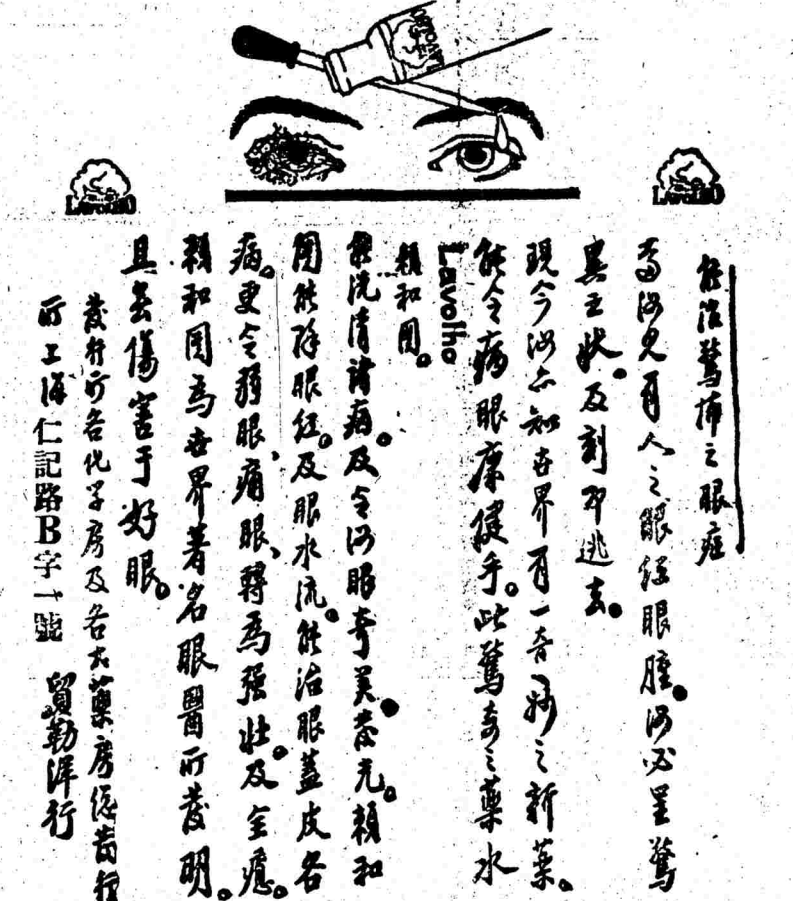 LAVOLHO
LAVOLHO
能治驚怖之眼症
當汝見有人之眼紅眼腫。汝必呈驚
異之狀。及刻即逃去。
現今汝亦知世界有一奇妙之新藥。
能令病眼康健乎。此驚奇之藥水
Lavolho
賴和固。
能洗清諸病。及令汝眼奇美發光。賴和
固能除眼紅。及眼水流。能治眼蓋皮各
病。更令弱眼、痛眼、轉為强壯。及全癒。
賴和固為世界著名眼醫所發明。
且無傷害于好眼。
發行所各化學房及各大藥房總發行
所上海仁記路B字一號 貿勒洋行